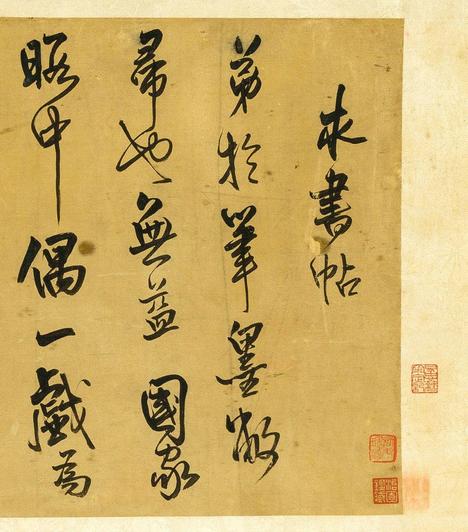 求書帖
弟於筆墨敝
帚也無益 國家
暇中偶一戲為